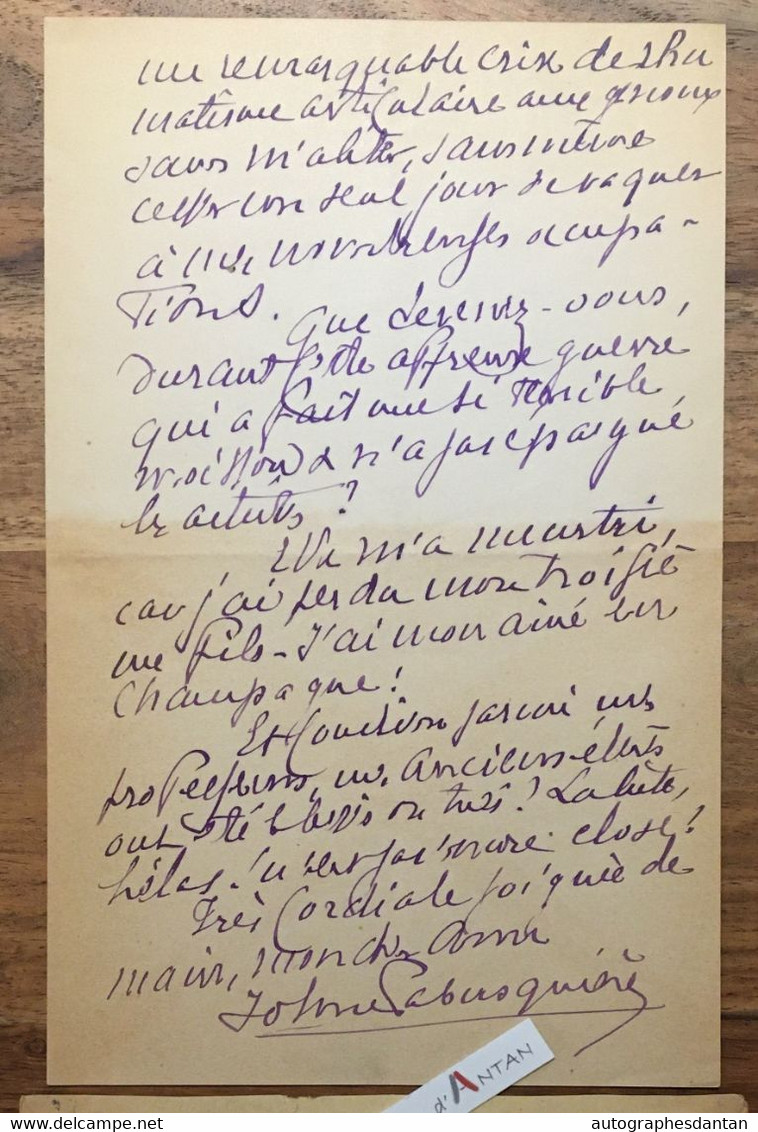 une remarquable crise de rhu
matisme articulaire aux genoux
sans m'aliter, sans même
cesser un seul jour de vaquer
à mes nombreuses occupa-
tions.
Que devenez-vous,
durant cette affreuse guerre
qui a fait une si terrible
moisson & n'a pas épargné
les artistes ?
Elle m'a meurtri,
car j'ai perdu mon troisiè
me fils - J'ai mon aîné en
Champagne !
Et combien parmi mes
professeurs, mes anciens élèves
ont été blessés ou tués ! La liste,
hélas ! n'est pas encore close !
Très cordiale poignée de
main, mon cher Ami
Johné Labusquière
d'ANTAN
autographesdantan